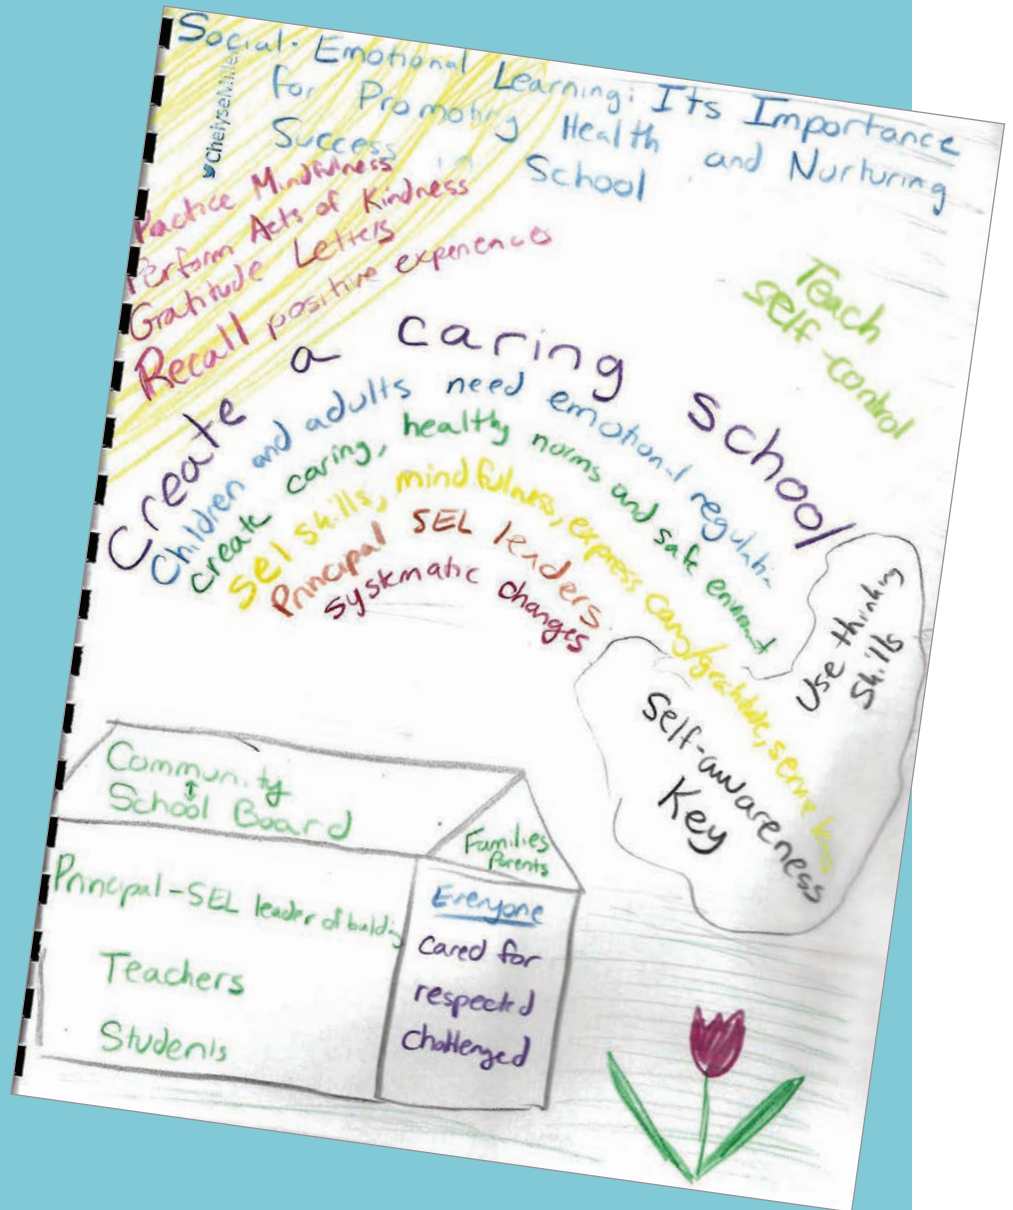 Social-Emotional Learning: Its Importance
for Promoting Health and Nurturing
Success in School
ChelyseMiller
Practice Mindfulness
Perform Acts of Kindness
Gratitude Letters
Recall positive experiences
Teach
self-control
Create a caring school
Children and adults need emotional regulatin
create caring, healthy norms and safe
Sel skills, mindfulness, express caring/gratitude,
Principal SEL leaders
Systematic changes
Use thinking
Skills
Self-awareness
Key
Community
School Board
Families
Parents
Principal-SEL leader of building
Teachers
Students
Everyone
Cared for
respected
Challenged